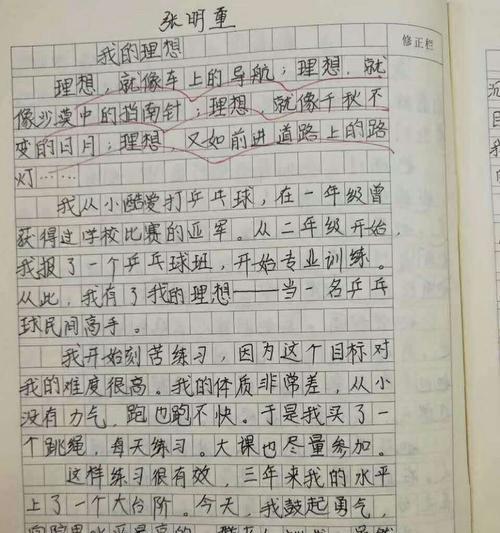 张明重
修正栏
我的理想
理想，就像车上的导航；理想，就
像沙漠中的指南针；理想，就像千秋不
变的日月；理想，又如前进道路上的路
灯……
我从小酷爱打乒乓球，在一年级曾
获得过学校比赛的亚军。从二年级开始，
我报了一个乒乓球班，开始专业训练。
从此，我有了我的理想——当一名乒乓
球民间高手。
我开始刻苦练习，因为这个目标对
我的难度很高。我的体质非常差，从小
没有力气，跑也跑不快。于是我买了一
个跳绳，每天练习。大课也尽量参加。
这样练习很有效，三年来我的水平
上了一个大台阶。今天，我鼓起勇气，